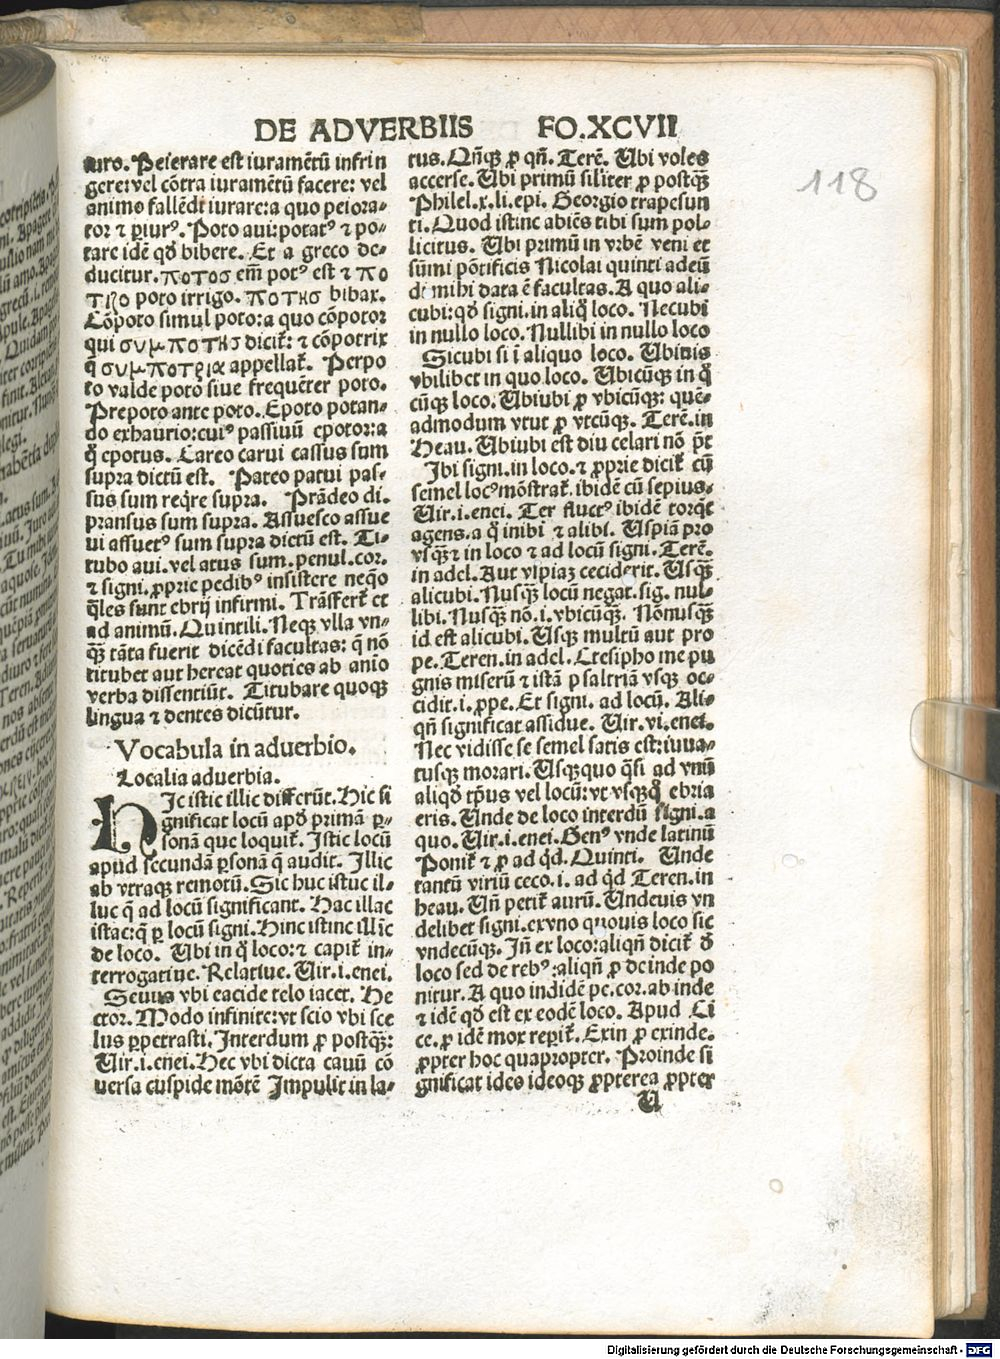 DE ADVERBIIS FO.XCVII
118
iuro. Peierare est iuramētū infrin
gere: vel cōtra iuramētū facere: vel
animo fallēdi iurare: a quo peiora-
tor ⁊ ꝑiurꝰ. Poto aui: potatꝰ ⁊ po-
tare idē qđ bibere. Et a greco de-
ducitur. ποτοσ em̄ potꝰ est ⁊ πο
τιζο poto irrigo. ποτησ bibax.
Cōpoto simul poto: a quo cōpotor
qui συμποτησ diciť: ⁊ cōpotrix
q̄ συμποτρια appellať. Perpo
to valde poto siue frequēter poto.
Prepoto ante poto. Epoto potan-
do exhaurio: cuiꝰ passiuū epotor: a
q̊ epotus. Careo carui cassus sum
supra dictū est. Pateo patui pas-
sus sum reqͥre supra. Prādeo di.
pransus sum supra. Assuesco assue
ui assuetꝰ sum supra dictū est. Ti-
tubo aui. vel atus sum. penul. cor.
⁊ signi. ꝓprie pedibꝰ insistere neqͦo
q̄les sunt ebrij infirmi. Trāsferť et
ad animū. Quintili. Neqꝫ vlla vn-
qꝫ̄ tāta fuerit dicēdi facultas: q̄ nō
titubet aut hereat quoties ab anio
verba dissentiūt. Titubare quoqꝫ
lingua ⁊ dentes dicūtur.
Vocabula in aduerbio.
Localia aduerbia.
HIc istic illic differūt. Hic si
gnificat locū apđ primā ꝑ-
sonā que loquiť. Istic locū
apud secundā ꝑsonā q̄ audit. Illic
ab vtraqꝫ remotū. Sic huc istuc il-
luc q̄ ad locū significant. Hac illac
istac: q̄ ꝑ locū signi. Hinc istinc illīc
de loco. Ubi in q̊ loco: ⁊ capiť in-
terrogatiue. Relatiue. Uir. i. enei.
Seuus vbi eacide telo iacet. He
ctor. Modo infinite: vt scio vbi sce
lus ꝑpetrasti. Interdum ꝓ postqꝫ̄:
Uir. i. enei. Hec vbi dicta cauū cō
uersa cuspide mōtē Impulit in la-
tus. Qn̄qꝫ ꝓ qn̄. Terē. Ubi voles
accerse. Ubi primū siliter ꝓ postqꝫ̄
Philel. x. li. epi. Georgio trapesun
ti. Quod istinc abiēs tibi sum pol-
licitus. Ubi primū in vrbē veni et
sūmi pōtificis Nicolai quinti adeūn
di mihi data ē facultas. A quo ali-
cubi: qđ signi. in aliq̊ loco. Necubi
in nullo loco. Nullibi in nullo loco
Sicubi si ī aliquo loco. Ubiuis
vbilibet in quo loco. Ubicūqꝫ in q̊
cūqꝫ loco. Ubiubi ꝓ vbicūqꝫ: que-
admodum vtut ꝓ vtcūqꝫ. Terē. in
Heau. Ubiubi est diu celari nō pt̄
Ibi signi. in loco. ⁊ ꝓprie diciť cū
semel locꝰ mōstrať. ibidē cū sepius.
Uir. i. enei. Ter fluctꝰ ibidē torqͤt
agens. a q̊ inibi ⁊ alibi. Uspiā pro
vsqꝫ̄ ⁊ in loco ⁊ ad locū signi. Terē.
in adel. Aut vspiaꝫ ceciderit. Usqꝫ̄
alicubi. Nusqꝫ̄ locū negat. sig. nul-
libi. Nusqꝫ̄ nō. i. vbicūqꝫ. Nōnusqꝫ̄
id est alicubi. Usqꝫ multū aut pro
pe. Teren. in adel. Ctesipho me pu
gnis miserū ⁊ istā psaltriā vsqꝫ oc-
cidit. i. ꝓpe. Et signi. ad locū. Ali-
qn̄ significat assidue. Uir. vi. enei.
Nec vidisse se semel satis est: iuua-
tusqꝫ morari. Usqꝫquo qͣsi ad vnū
aliqđ tp̄us vel locū: vt vsqꝫq̊ ebria
eris. Unde de loco interdū signi. a
quo. Uir. i. enei. Genꝰ vnde latinū
Poniť ⁊ ꝓ ad qđ. Quinti. Unde
tantū viriū ceco. i. ad qđ Teren. in
heau. Un̄ petiť aurū. Undeuis vn
delibet signi. ex vno quouis loco sic
vndecūqꝫ. Jn̄ ex loco: aliqn̄ diciť đ
loco sed de rebꝰ: aliqn̄ ꝓ deinde po
nitur. A quo indidē pe. cor. ab inde
⁊ idē qđ est ex eodē loco. Apud Ci
ce. ꝓ idē mox reꝑiť. Exin ꝓ exinde.
ꝓpter hoc quapropter. Proinde si
gnificat ideo ideoqꝫ ꝓpterea ꝓpter
U
Digitalisierung gefördert durch die Deutsche Forschungsgemeinschaft - DFG